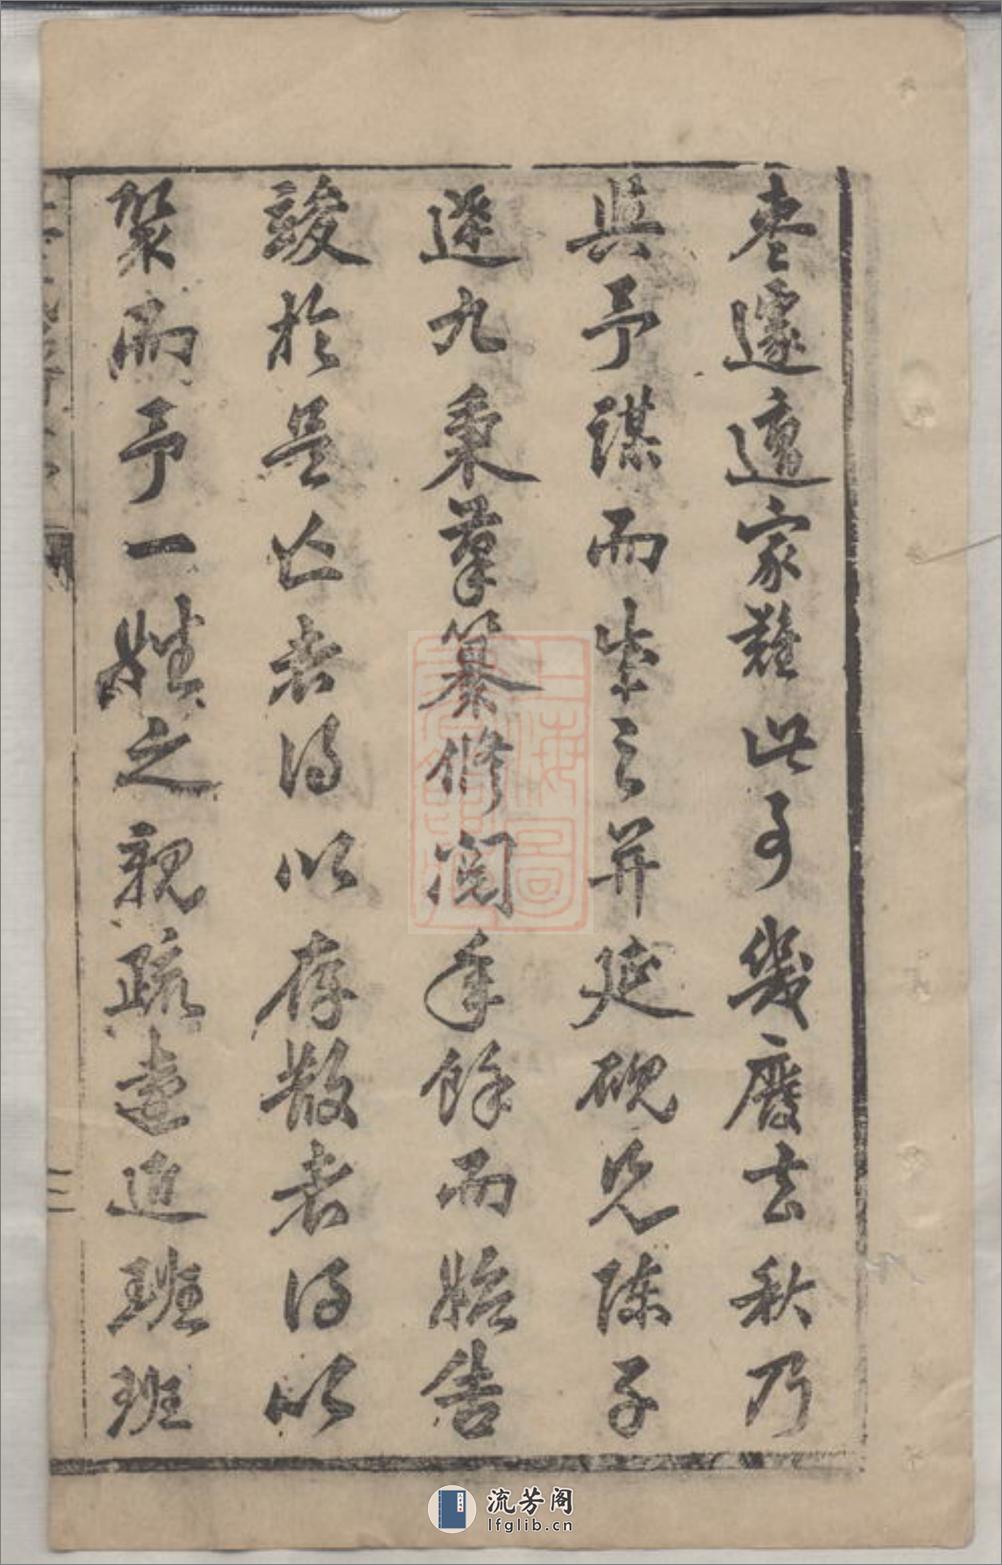 棗遽遭家難此事幾廢去秋乃
與予謀而坐之并延硯兄陳子
遜九秉筆纂修閱年餘而始告
竣於是亡者得以存散者得以
聚而予一姓之親疏遠近班班
流芳阁
lfglib.cn